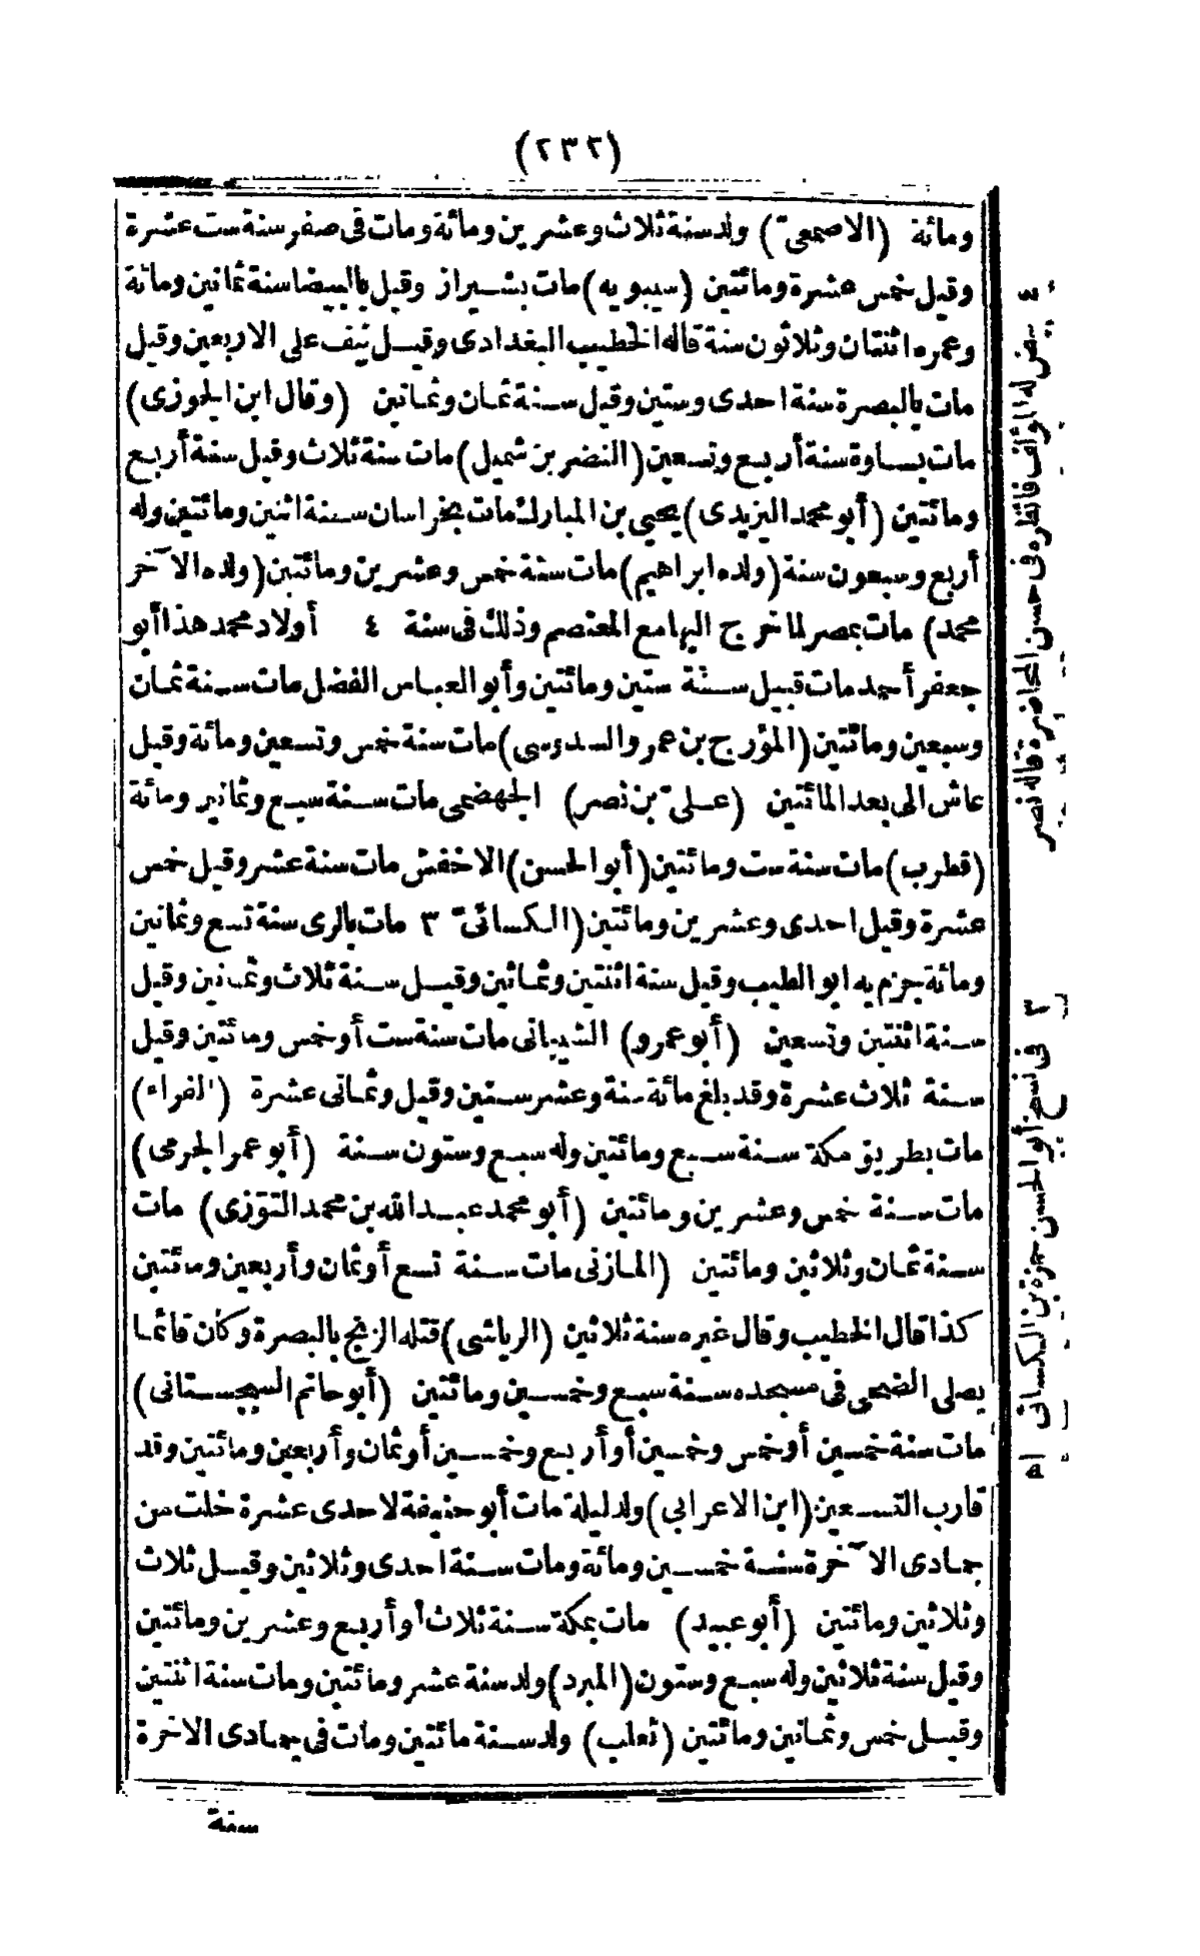 (٢٣٢)
ومائة (الاصمعىّ) ولد سنة ثلاث وعشرين ومائة ومات فى صفر سنة ست عشرة
وقيل خمس عشرة ومائتين (سيبويه) مات بشيراز وقيل بالبيضا سنة ثمانين ومائة
وعمره اثنتان وثلاثون سنة قاله الخطيب البغدادى وقيل نيف على الاربعين وقيل
مات بالبصرة سنة احدى وستين وقيل سنة ثمان وثمانين (وقال ابن الجوزى)
مات بساوة سنة أربع وتسعين (النضر بن شميل) مات سنة ثلاث وقيل سنة أربع
ومائتين (أبو محمد اليزيدى) يحيى بن المبارك مات بخراسان سنة اثنين ومائتين وله
أربع وسبعون سنة (ولده ابراهيم) مات سنة خمس وعشرين ومائتين (ولده الآخر
محمد) مات بمصر لما خرج اليها مع المعتصم وذلك فى سنة ٤ أولاد محمد هذا أبو
جعفر أحمد مات قبيل سنة ستين ومائتين وأبو العباس الفضل مات سنة ثمان
وسبعين ومائتين (المؤرج بن عمر والسدوسى) مات سنة خمس وتسعين ومائة وقيل
عاش الى بعد المائتين (علىّ بن نصر) الجهضمى مات سنة سبع وثمانين ومائة
(قطرب) مات سنة ست ومائتين (أبو الحسن) الاخفش مات سنة عشر وقيل خمس
عشرة وقيل احدى وعشرين ومائتين (الكسائىّ ٣ مات بالرى سنة تسع وثمانين
ومائة جزم به ابو الطيب وقيل سنة اثنتين وثمانين وقيل سنة ثلاث وثمانين وقيل
سنة اثنتين وتسعين (أبو عمرو) الشيبانى مات سنة ست أو خمس ومائتين وقيل
سنة ثلاث عشرة وقد بلغ مائة سنة وعشر سنين وقيل وثمانى عشرة (الفراء)
مات بطريق مكة سنة سبع ومائتين وله سبع وستون سنة (أبو عمر الجرمى)
مات سنة خمس وعشرين ومائتين (أبو محمد عبد الله بن محمد التوّزى) مات
سنة ثمان وثلاثين ومائتين (المازنى مات سنة تسع أو ثمان وأربعين ومائتين
كذا قال الخطيب وقال غيره سنة ثلاثين (الرياشى) قتله الزنج بالبصرة وكان قائما
يصلى الضحى فى مسجده سنة سبع وخمسين ومائتين (أبو حاتم السجستانى)
مات سنة خمسين أو خمس وخمسين أو أربع وخمسين أو ثمان وأربعين ومائتين وقد
قارب التسعين (ابن الاعرابى) ولد ليلة مات أبو حنيفة لاحدى عشرة خلت من
جمادى الآخرة سنة خمسين ومائة ومات سنة احدى وثلاثين وقيل ثلاث
وثلاثين ومائتين (أبو عبيد) مات بمكة سنة ثلاث أو أربع وعشرين ومائتين
وقيل سنة ثلاثين وله سبع وستون (المبرد) ولد سنة عشر ومائتين ومات سنة اثنتين
وقيل خمس وثمانين ومائتين (ثعلب) ولد سنة مائتين ومات فى جمادى الاخرة
سنة
٤ بيض له المؤلف فانظره فى حسن المحاضرة قاله نصر
٣ فى نسخ أبو الحسن حمزة بن الكسائى اه